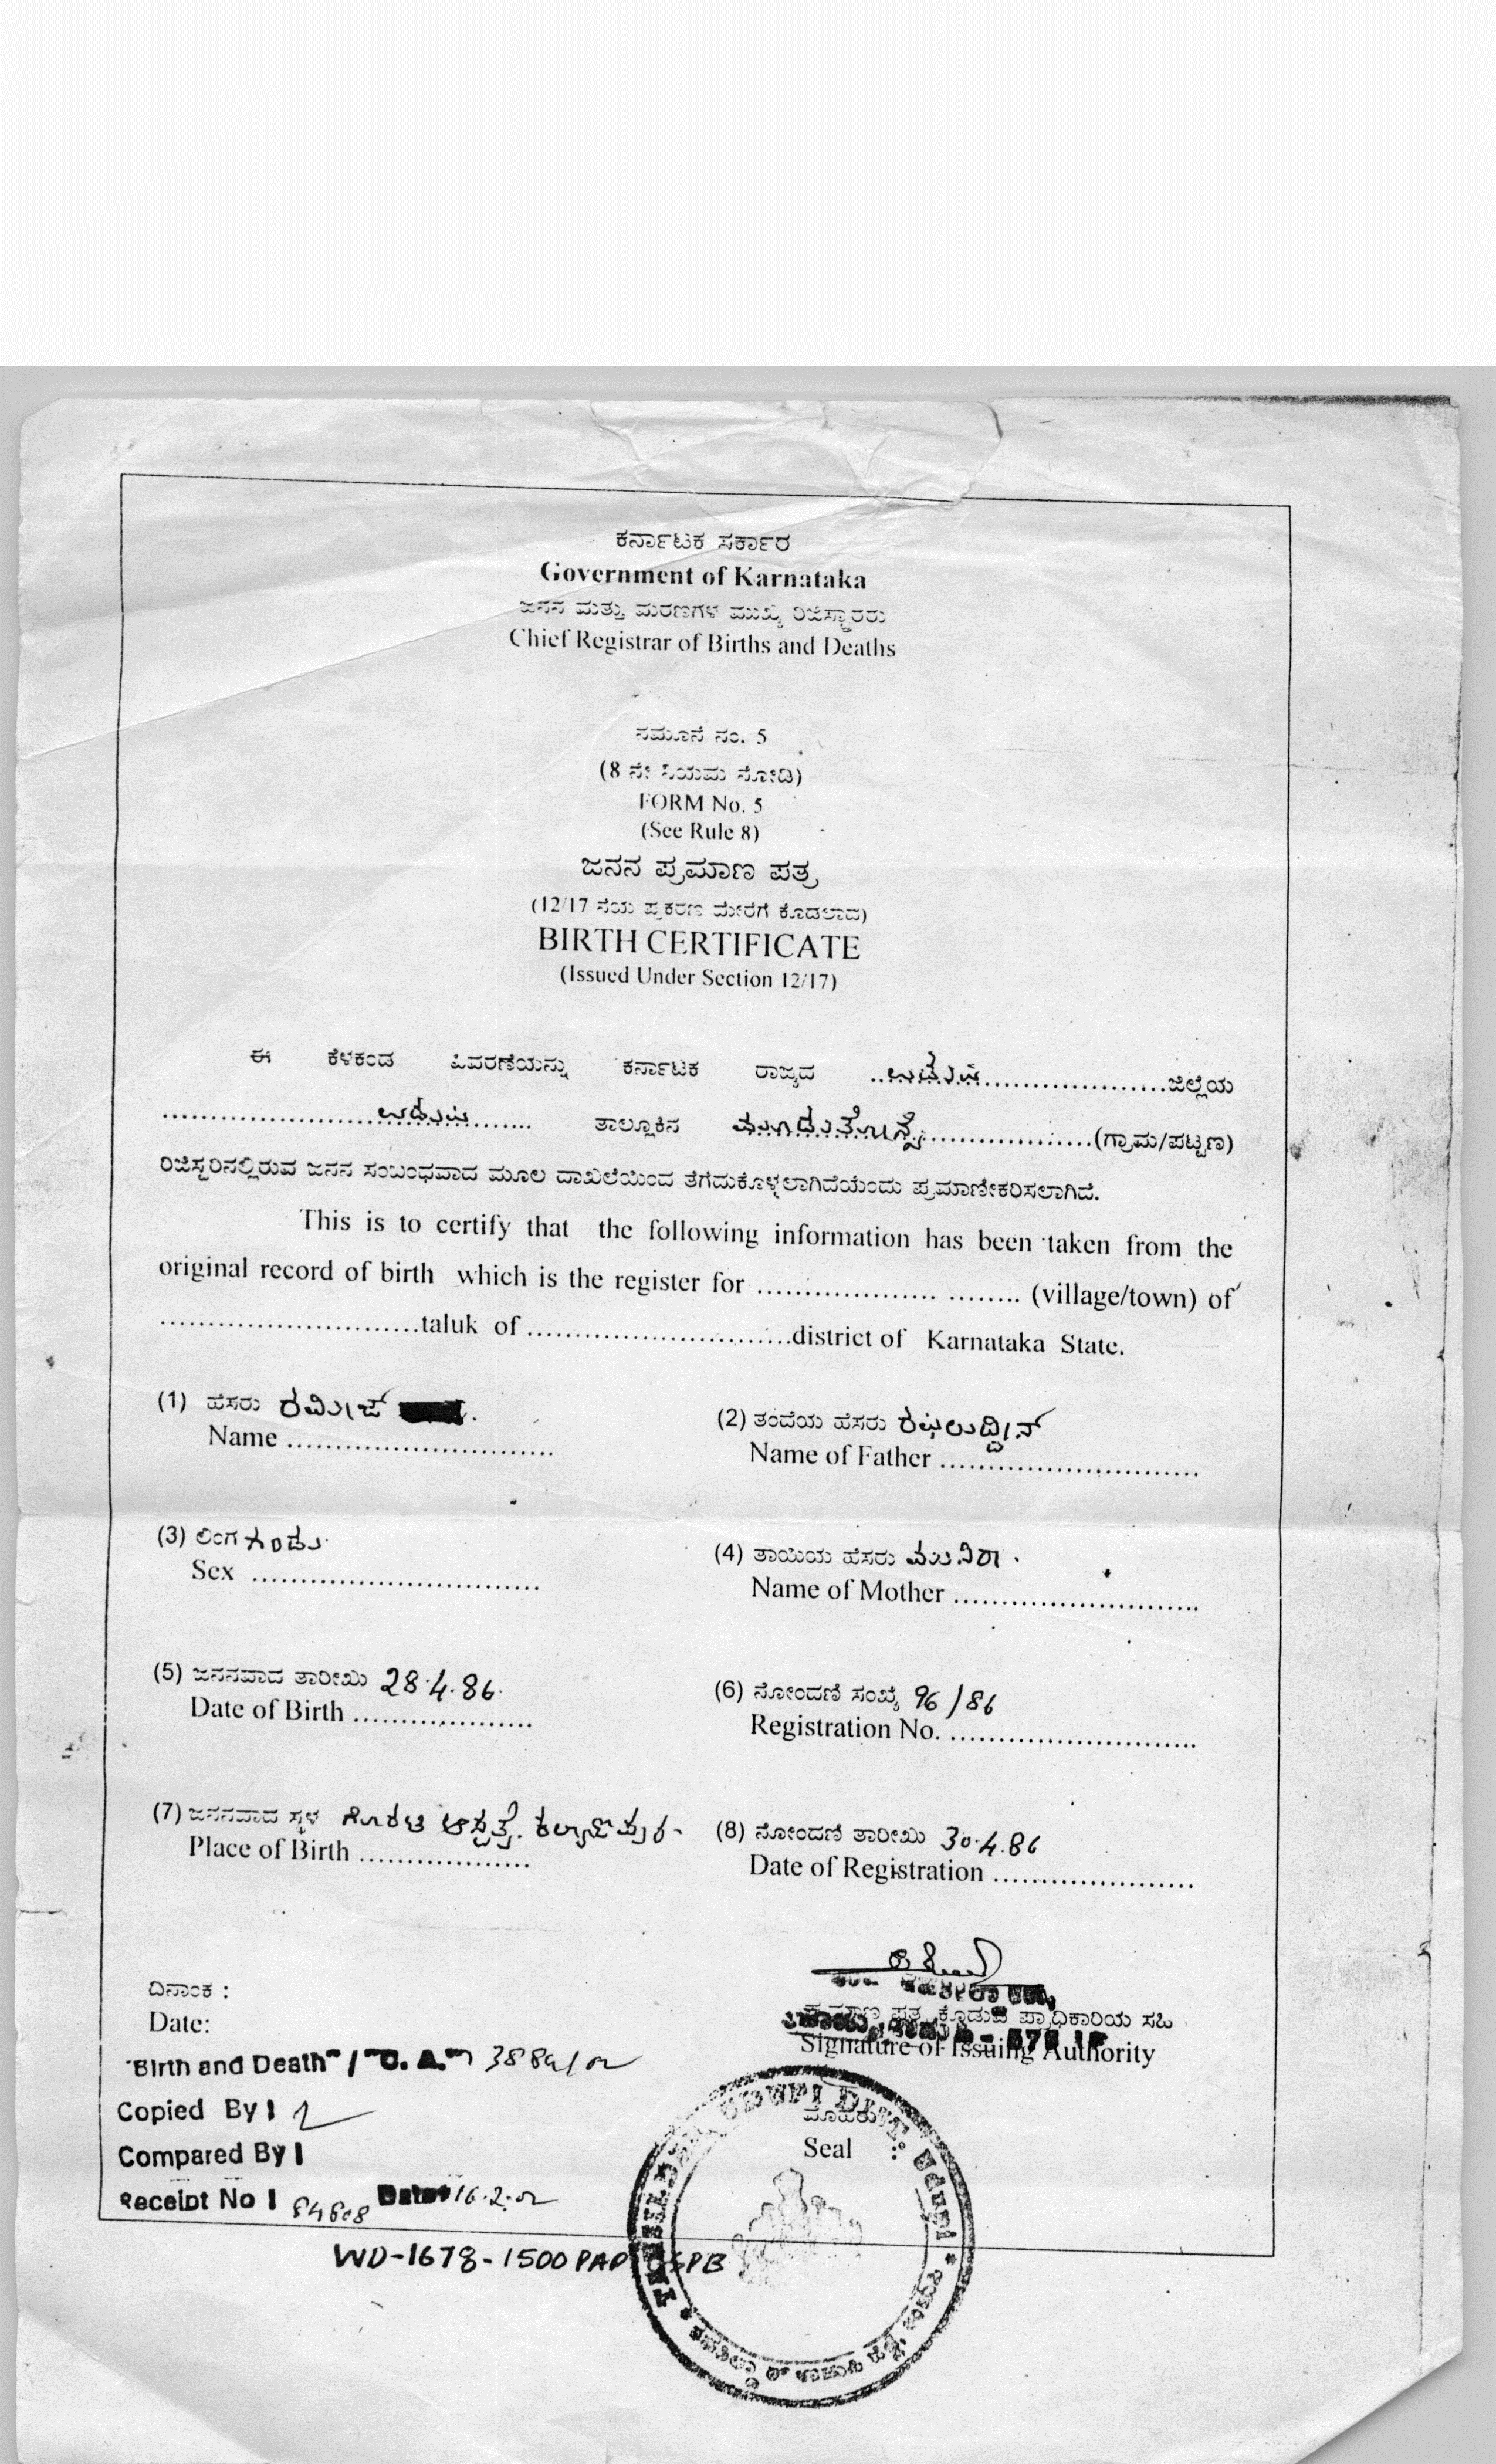 ಕರ್ನಾಟಕ ಸರ್ಕಾರ
Government of Karnataka
ಜನನ ಮತ್ತು ಮರಣಗಳ ಮುಖ್ಯ ರಿಜಿಸ್ಟ್ರಾರರು
Chief Registrar of Births and Deaths
ನಮೂನೆ ನಂ. 5
(8 ನೇ ನಿಯಮ ನೋಡಿ)
FORM No. 5
(See Rule 8)
ಜನನ ಪ್ರಮಾಣ ಪತ್ರ
(12/17 ನೆಯ ಪ್ರಕರಣ ಮೇರೆಗೆ ಕೊಡಲಾದ)
BIRTH CERTIFICATE
(Issued Under Section 12/17)
ಈ ಕೆಳಕಂಡ ವಿವರಣೆಯನ್ನು ಕರ್ನಾಟಕ ರಾಜ್ಯದ ..ಉಡುಪಿ....................ಜಿಲ್ಲೆಯ
.......................ಉಡುಪಿ....... ತಾಲ್ಲೂಕಿನ ಮೂಡುತೋನ್ಸೆ..................(ಗ್ರಾಮ/ಪಟ್ಟಣ)
ರಿಜಿಸ್ಟರಿನಲ್ಲಿರುವ ಜನನ ಸಂಬಂಧವಾದ ಮೂಲ ದಾಖಲೆಯಿಂದ ತೆಗೆದುಕೊಳ್ಳಲಾಗಿದೆಯೆಂದು ಪ್ರಮಾಣೀಕರಿಸಲಾಗಿದೆ.
This is to certify that the following information has been taken from the
original record of birth which is the register for ................... ........ (village/town) of
...........................taluk of ............................district of Karnataka State.
(1) ಹೆಸರು ರಮೀಜ್ (2) ತಂದೆಯ ಹೆಸರು ರಫೀಲುದ್ದೀನ್
Name ............................ Name of Father ...........................
(3) ಲಿಂಗ ಗಂಡು (4) ತಾಯಿಯ ಹೆಸರು ಮುನಿರಾ .
Sex .............................. Name of Mother ..........................
(5) ಜನನವಾದ ತಾರೀಖು 28.4.86. (6) ನೋಂದಣಿ ಸಂಖ್ಯೆ 96/86
Date of Birth ................... Registration No. ..........................
(7) ಜನನವಾದ ಸ್ಥಳ ಗೊರಟಿ ಆಸ್ಪತ್ರೆ. ಕಲ್ಯಾಣಪುರ - (8) ನೋಂದಣಿ ತಾರೀಖು 30.4.86
Place of Birth .................. Date of Registration .....................
ದಿನಾಂಕ :
ಪ್ರಮಾಣ ಪತ್ರ ಕೊಡುವ ಪ್ರಾಧಿಕಾರಿಯ ಸಹಿ
Date:
Signature of Issuing Authority
"Birth and Death" / "C. A."
Copied By
ಮೊಹರು
Seal :
Compared By
Receipt No 84608 Date 16.2.02
WD-1678-1500 PADS GSPB
TAHSILDAR UDUPI DIST. Udupi *